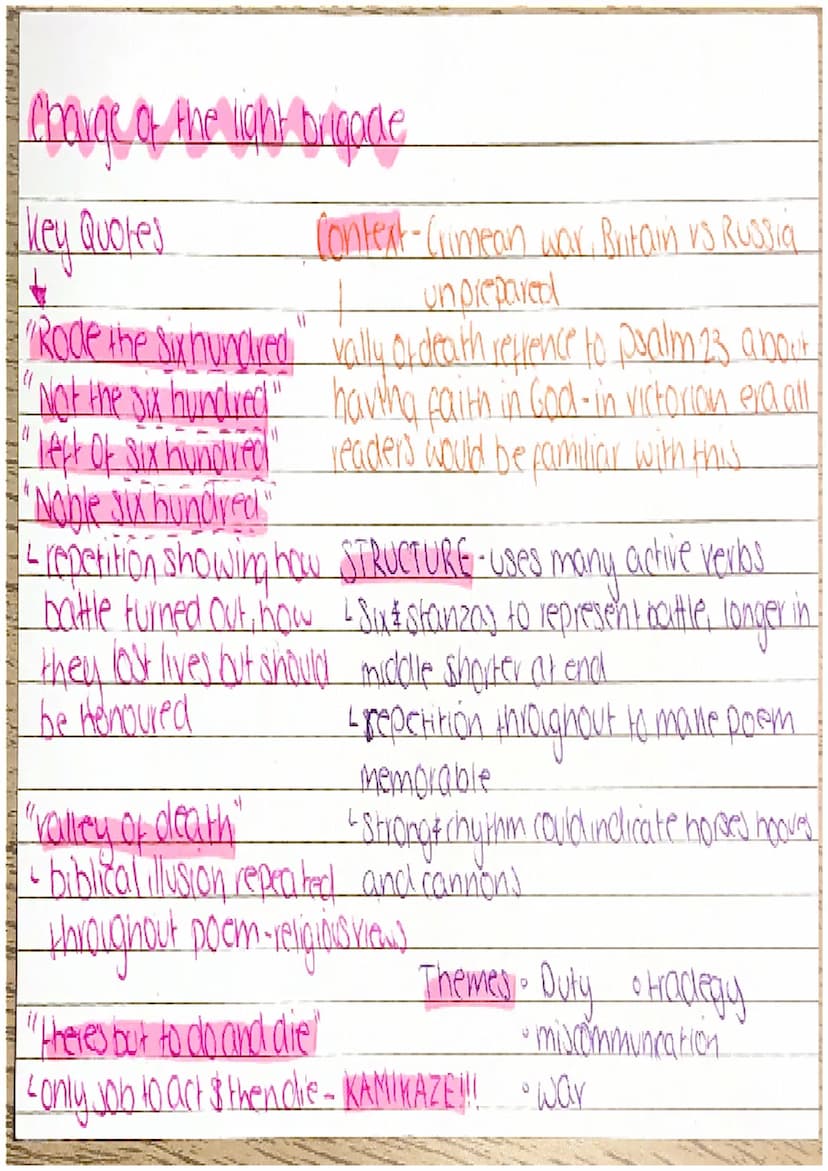 Charge of the light brigade
Key Quotes
"Rode the six hundred"
"Not the six hundred"
"left of six hundred"
"Noble six hundred"
↳ repetition showing how
battle turned out, how
they lost lives but should
be Honoured
"valley of death"
↳ biblical illusion repeated
throughout poem - religious views
"theres but to do and die"
↳ only job to act & then die - KAMIKAZE!!!
Context - Crimean war, Britain vs Russia
unprepared
vally of death refrence to psalm 23 about
having faith in God - in victorian era all
readers would be familiar with this
STRUCTURE - uses many active verbs
↳ Six stanzas to represent battle, longer in
middle shorter at end
↳ repetition throughout to make poem
memorable
↳ strong rhythm could indicate horses hooves
and cannons
Themes • Duty • tradegy
• miscommuncation
• war